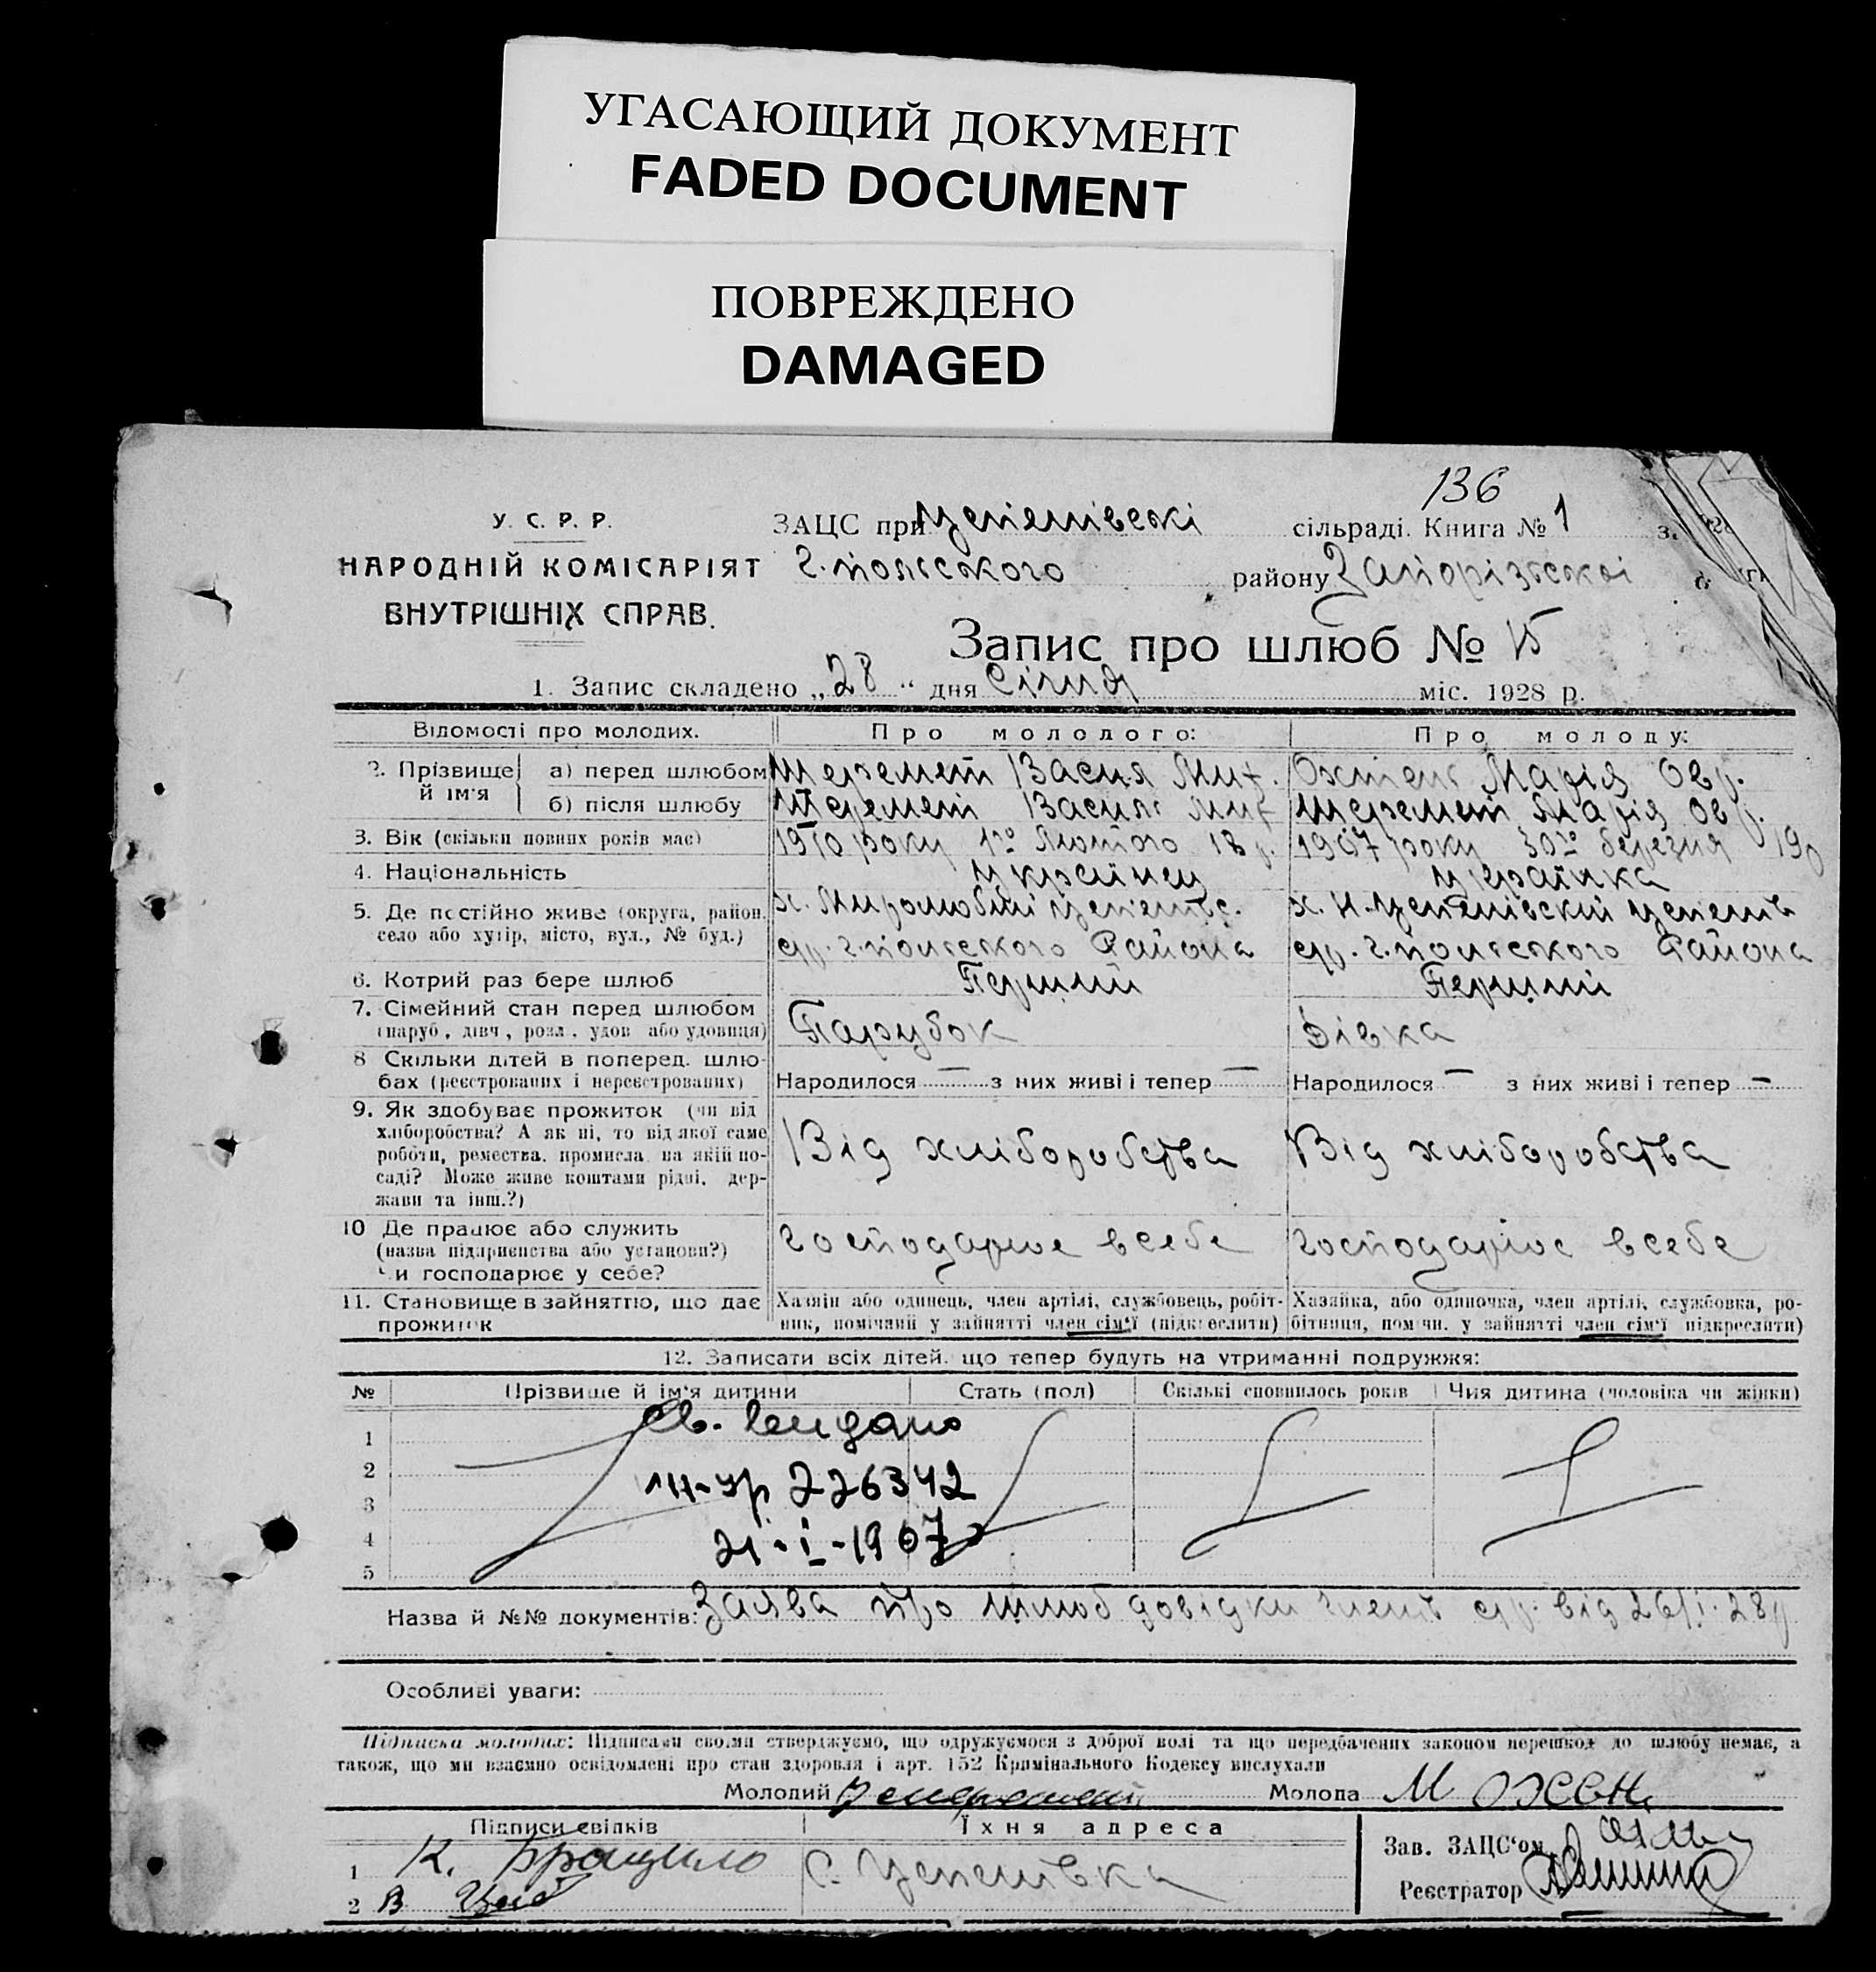 УГАСАЮЩИЙ ДОКУМЕНТ
FADED DOCUMENT
ПОВРЕЖДЕНО
DAMAGED
136
У. С. Р. Р.
НАРОДНІЙ КОМІСАРІЯТ
ВНУТРІШНІХ СПРАВ.
ЗАЦС при Успенівські сільраді. Книга № 1 з.
г.польського району Запорізської
Запис про шлюб № 15
1. Запис складено „28“ дня Січня міс. 1928 р.
Відомості про молодих. Про молодого: Про молоду:
2. Прізвище й ім'я а) перед шлюбом Шеремет Васил Мит. Охтень Марія Овр.
б) після шлюбу Шеремет Василь Мит Шеремет Марія Овр.
3. Вік (скільки повних років має) 1910 року 1го Лютого 18 р. 1907 року 30го березня
4. Національність Українец Українка
5. Де постійно живе (округа, район, село або хутір, місто, вул., № буд.) х. Миролюбський успенівс. ср. г.польського Района х. Н.Успенівский успенів ср. г.польського Района
6. Котрий раз бере шлюб Перший Перший
7. Сімейний стан перед шлюбом (паруб., дівч., розл., удов. або удовиця) Парубок Дівка
8 Скільки дітей в поперед. шлюбах (реєстрованих і нереєстрованих) Народилося — з них живі і тепер — Народилося — з них живі і тепер —
9. Як здобуває прожиток (чи від хліборобства? А як ні, то від якої саме роботи, ремества, промисла, на якій посаді? Може живе коштами рідні, держави та інш.?) Від хліборобства Від хліборобства
10 Де працює або служить (назва підприємства або установи?) Чи господарює у себе? господарює всебе господарює всебе
11. Становище в зайняттю, що дає прожиток Хазяїн або одинець, член артілі, службовець, робітник, помічний у зайнятті член сім'ї (підкреслити) Хазяйка, або одиночка, член артілі, службовка, робітниця, помічн. у зайнятті член сім'ї підкреслити)
12. Записати всіх дітей, що тепер будуть на утриманні подружжя:
№ Прізвище й ім'я дитини Стать (пол) Скількі сповнилось років Чия дитина (чоловіка чи жінки)
1 Св.
2 226342
3
4 21-I-1967
5
Назва й №№ документів: Заява про шлюб довідки ср. від 26/I-28р
Особливі уваги:
Підписка молодих: Підписами своїми стверджуємо, що одружуємося з доброї волі та що передбачених законом перешкод до шлюбу немає, а
також, що ми взаємно освідомлені про стан здоровля і арт. 152 Кримінального Кодексу вислухали
Молодий Молода М Охтень
Підписи свідків Їхня адреса
Зав. ЗАЦС'ом
1 К. с. Успенівка
Реєстратор
2 В